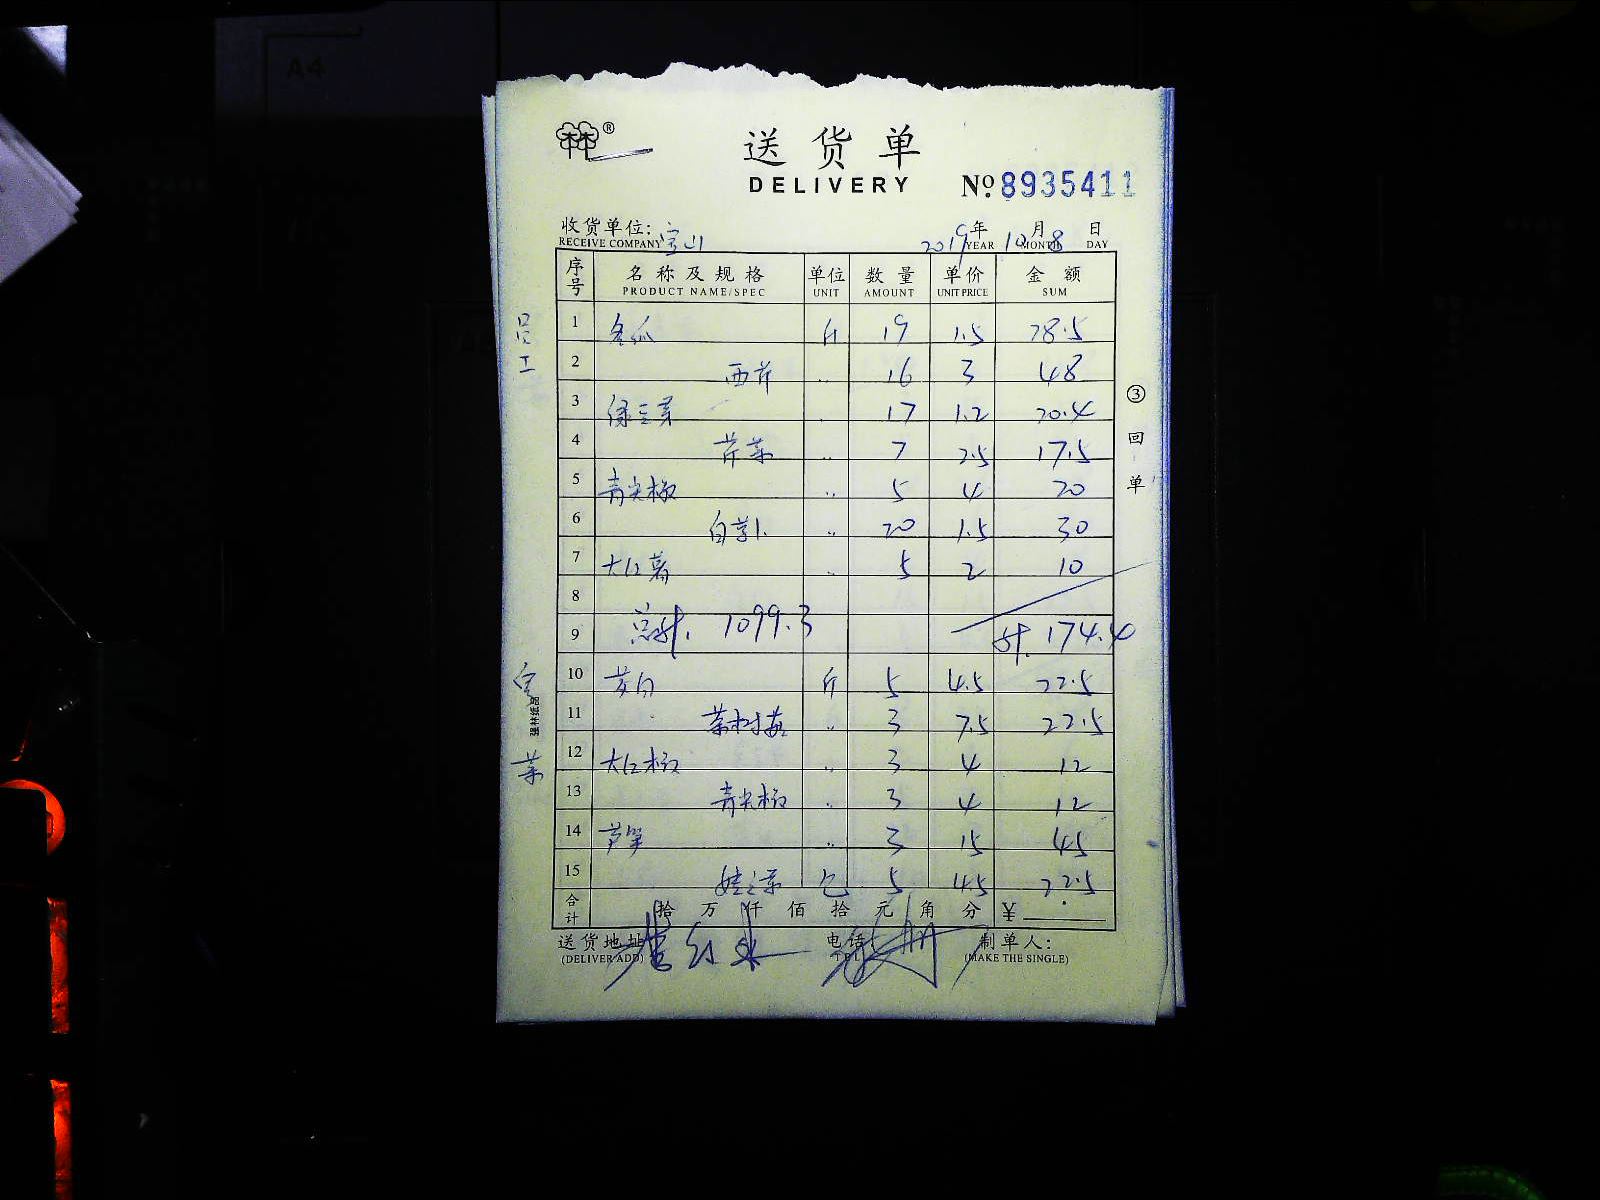 A4
®
送货单
DELIVERY
№ 8935411
收货单位: 宝山 2019年 10月 8日
RECEIVE COMPANY YEAR MONTH DAY
序号 名称及规格 单位 数量 单价 金额
PRODUCT NAME/SPEC UNIT AMOUNT UNIT PRICE SUM
员工
1 冬瓜 斤 19 1.5 28.5
2 西芹 〃 16 3 48
3 绿豆芽 17 1.2 20.4
4 芹菜 〃 7 2.5 17.5
5 青尖椒 〃 5 4 20
6 白萝卜 〃 20 1.5 30
7 大红薯 〃 5 2 10
8
9 总计. 1099.3 计. 174.4
10 茭白 斤 5 4.5 22.5
11 茶树菇 〃 3 7.5 22.5
12 大红椒 〃 3 4 12
13 青尖椒 〃 3 4 12
14 芦笋 〃 3 15 45
15 娃娃菜 包 5 4.5 22.5
合计 拾 万 仟 佰 拾 元 角 分 ¥
送货地址 电话 制单人:
(DELIVER ADD) TEL (MAKE THE SINGLE)
③回单
强林纸品
菜